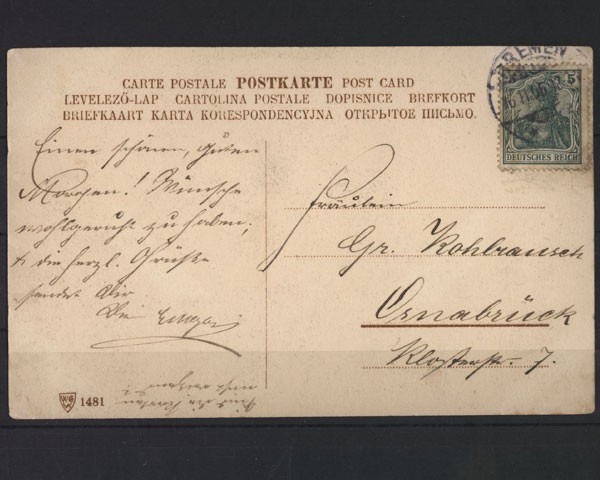 CARTE POSTALE POSTKARTE POST CARD
LEVELEZŐ-LAP CARTOLINA POSTALE DOPISNICE BREFKORT
BRIEFKAART KARTA KORESPONDENCYJNA ОТКРЫТОЕ ПИСЬМО.
BREMEN
5
DEUTSCHES REICH
Einen schönen, Guten
Morgen! Wünsche
wohlgeruht zu haben,
& die herzl. Grüße
sendet Dir
Fräulein
Gr. Kohlrausch
Osnabrück
Klosterstr. 7.
1481